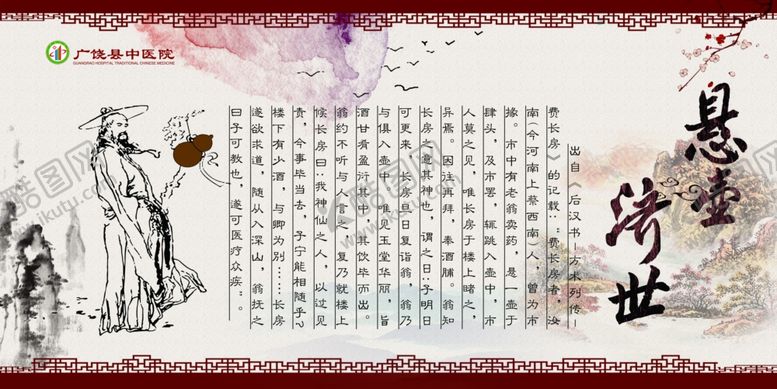 广饶县中医院
GUANGRAO HOSPITAL TRADITIONAL CHINESE MEDICINE
悬壶
济世
出自 后汉书—方术列传—
费长房 的记载: :费长房者,汝
南(今河南上蔡西南 人,曾为市
掾。市中有老翁卖药,是一壶于
肆头,及市罢,辄跳入壶中,市
人莫之见,唯长房于楼上睹之,
异焉。因往再拜,奉酒脯。翁知
长房 意其神也,谓之曰:子明日
可更来 长房旦日复诣翁,翁乃
与俱入壶中 唯见玉堂华丽,旨
酒甘肴盈衍其中,共饮毕而出。
翁约不听与人言之 复乃就楼上
候长房曰:我神仙之人,以过见
责,今事毕当去,子宁能相随乎?
楼下有少酒,与卿为别……长房
遂欲求道,随从入深山,翁抚之
曰子可教也,遂可医疗众疾"。